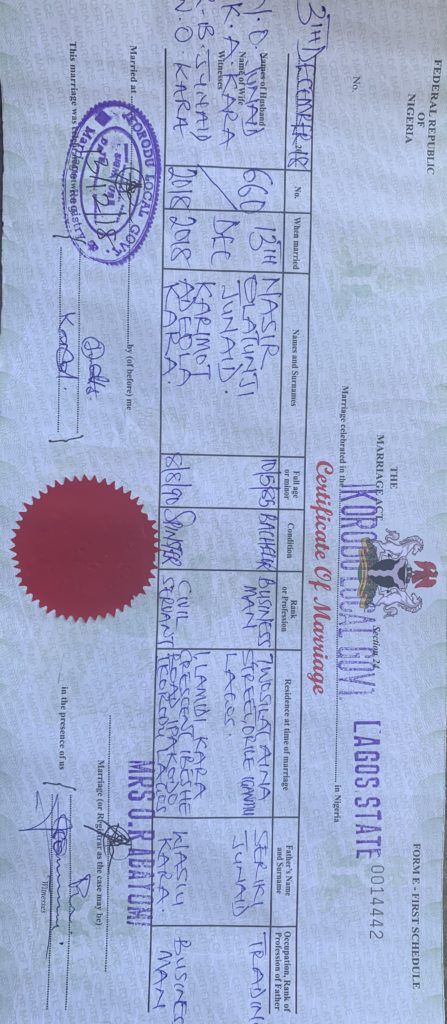 FEDERAL REPUBLIC
OF
NIGERIA
THE
MARRIAGE ACT
Section 24
FORM E - FIRST SCHEDULE
No.
Marriage celebrated in the IKORODU LOCAL GOVT LAGOS STATE in Nigeria
0014442
Certificate Of Marriage
13TH DECEMBER 2018
No.
When married
Names and Surnames
Full age or minor
Condition
Rank or Profession
Residence at time of marriage
Father's Name and Surname
Occupation, Rank of Profession of Father
Names of Husband
N.O. JUNAID
660
13TH
NASIR OLATUNJI JUNAID.
10/5/85
BACHELOR
BUSINESS MAN
LAGOS.
SERIKI JUNAID
TRADIN
Name of Wife
K.A. KARA
DEC
Witnesses
B. JUNAID
2018
KARIMOT ADEOLA KARA.
8/8/90
SPINSTER
CIVIL SERVANT
1, LAMIDI KARA CRESCENT IRESHE ROAD IPAKODO IKORODU LAGOS
WASIU KARA.
BUSINESS MAN
O. KARA
2018
Married at
by (of before) me
MRS O. R ABAYOMI
Marriage (or Registrar as the case may be)
IKORODU LOCAL GOVT.
Marriage Registry
This marriage was
Kara
in the presence of us
Witnesses